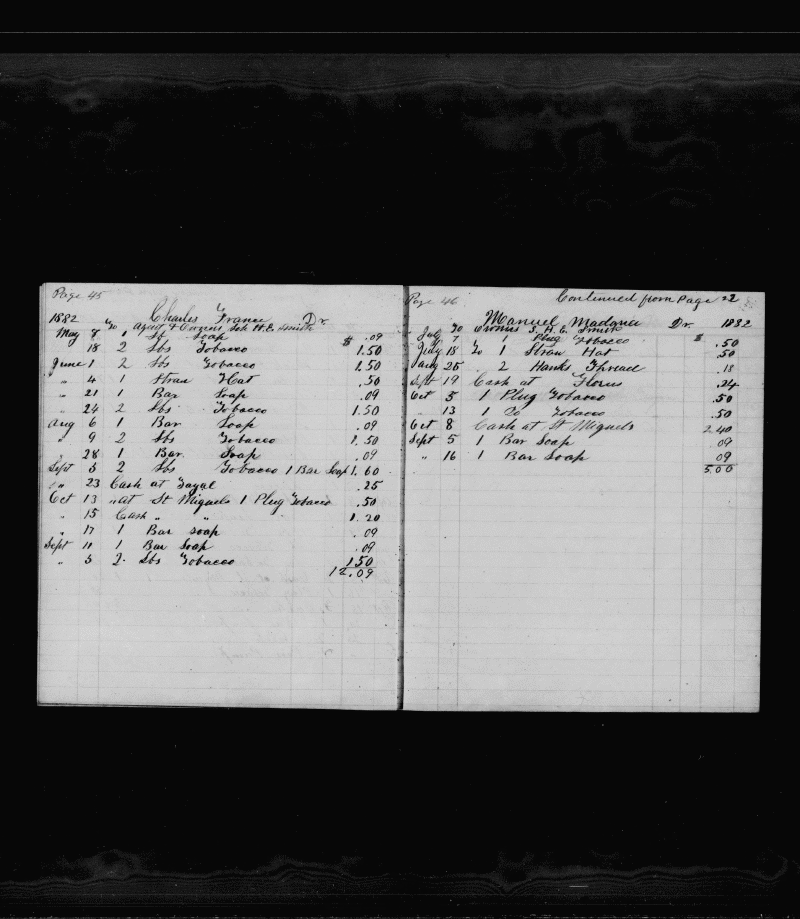 Page 45
1882 Charles Dr.
To Agent & Owners Sch H.E. Smith
May 8 1 Soap $ .09
18 2 Lbs Tobacco 1.50
June 1 2 Lbs Tobacco 1.50
" 4 1 Straw Hat .50
" 21 1 Bar Soap .09
" 24 2 Lbs Tobacco 1.50
Aug 6 1 Bar Soap .09
" 9 2 Lbs Tobacco 1.50
" 28 1 Bar Soap .09
Sept 5 2 Lbs Tobacco 1 Bar Soap 1.60
" 23 Cash at Fayal .25
Oct 13 " at St Miguels 1 Plug Tobacco .50
" 15 Cash " " 1.20
" 17 1 Bar soap .09
Sept 11 1 Bar Soap .09
" 5 2 Lbs Tobacco 1.50
12.09
Page 46 Continued from Page 22
Manuel Dr. 1882
To Owners S. H. E. Smith
July 7 1 Plug Tobacco $ .50
July 18 To 1 Straw Hat .50
Aug 25 2 Hanks Thread .18
Sept 19 Cash at Flores .24
Oct 5 1 Plug Tobacco .50
" 13 1 Do Tobacco .50
Oct 8 Cash at St Miguels 2.40
Sept 5 1 Bar Soap 09
" 16 1 Bar Soap 09
5.00